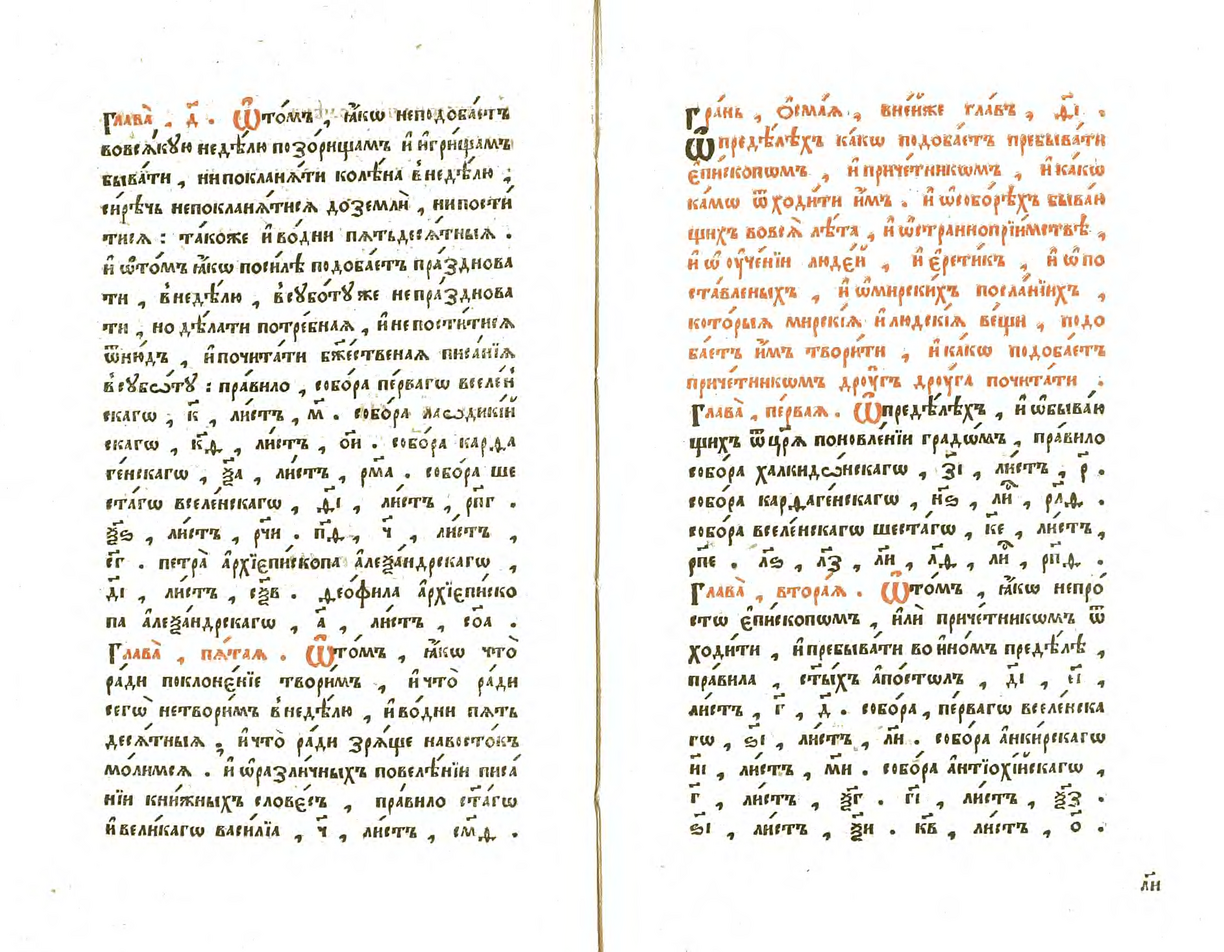 Глава̀ , д҃ . Ѿто́мъ , ꙗ҆́кѡ неподоба́етъ
вовсѧ́кꙋю недѣ́лю позо́рищамъ и҆ и҆гри́щамъ
быва́ти , нипоклана́ти колѣ́на внедѣ́лю ,
си́рѣчь непокланѧ́тисѧ доземлѝ , нипости́
тисѧ : та́коже и҆ во́дни пѧтьдесѧ́тныѧ .
и҆ ѡ҆то́мъ ꙗ҆́кѡ посилѣ̀ подоба́етъ пра́зднова
ти , внедѣ́лю , всꙋбо́тꙋже непра́зднова
ти , но дѣ́лати потре́бнаѧ , и҆непости́тисѧ
ѿню́дъ , и҆почита́ти бж҃е́ственаѧ писа́нїѧ
всꙋбѡ́тꙋ : пра́вило , собо́ра пе́рвагѡ вселе́н
скагѡ , к҃ , ли́стъ , м҃ . собо́ра лаѡдикі́й
скагѡ , к҃д , ли́стъ , о҃и . собо́ра карѳа
ге́нскагѡ , ѯ҃а , ли́стъ , рм҃а . собо́ра ше
ста́гѡ вселе́нскагѡ , д҃і , ли́стъ , рп҃г .
ѯ҃ѕ , ли́стъ , рч҃и . п҃ѳ , ч҃ , ли́стъ ,
с҃г . петра̀ а҆рхїепи́скопа а҆леѯа́ндрскагѡ ,
д҃і , ли́стъ , сѯ҃в . ѳео́фила а҆рхїепи́ско
па а҆леѯа́ндрскагѡ , а҃ , ли́стъ , со҃а .
Глава̀ , пѧ́таѧ . Ѿто́мъ , ꙗ҆́кѡ что̀
ра́ди поклоне́нїе твори́мъ , и҆что̀ ра́ди
сегѡ̀ нетвори́мъ внедѣ́лю , и҆во́дни пѧть
десѧ́тныѧ , и҆что̀ ра́ди зрѧ́ще навосто́къ
мо́лимсѧ . и҆ ѡ҆разли́чныхъ повелѣ́нїи писа́
нїи кни́жныхъ слове́съ , пра́вило ст҃а́гѡ
и҆ вели́кагѡ васи́лїа , ч҃ , ли́стъ , см҃ѳ .
Гра́нь , ѻ҆сма́ѧ , вне́йже гла́въ , д҃і .
Ѡ҆предѣ́лѣхъ ка́кѡ подоба́етъ пребыва́ти
є҆пи́скопѡмъ , и҆при́четникѡмъ , и҆ка́кѡ
ка́мѡ ѿходи́ти и҆̀мъ . и҆ ѡ҆собо́рѣхъ быва́ю
щихъ вовсѧ̀ лѣ́та , и҆ ѡ҆страннопрїи́мствѣ ,
и҆ ѡ҆ ѹ҆че́нїи люде́й , и҆ є҆рети́къ , и҆ ѡ҆ по
ста́вленыхъ , и҆ ѡ҆мирски́хъ посла́нїихъ ,
кото́рыѧ мирскі́ѧ и҆людскі́ѧ ве́щи , подо
ба́етъ и҆̀мъ твори́ти , и҆ка́кѡ подоба́етъ
при́четникѡмъ дрꙋ́гъ дрꙋ́га почита́ти .
Глава̀ , пе́рваѧ . Ѡ҆предѣ́лѣхъ , и҆ ѡ҆быва́ю
щихъ ѿцр҃ѧ̀ поновле́нїи градѡ́мъ , пра́вило
собо́ра халкидѡ́нскагѡ , з҃і , ли́стъ , р҃ .
собо́ра карѳаге́нскагѡ , н҃ѕ , ли́ , рл҃ѳ .
собо́ра вселе́нскагѡ шеста́гѡ , к҃е , ли́стъ ,
рп҃е . л҃ѕ , л҃з , л҃и , л҃ѳ , ли́ , рп҃ѳ .
Глава̀ , втора́ѧ . Ѿто́мъ , ꙗ҆́кѡ непро́
стѡ є҆пи́скопѡмъ , и҆лѝ при́четникѡмъ ѿ
ходи́ти , и҆пребыва́ти во и҆но́мъ предѣ́лѣ ,
пра́вила , ст҃ы́хъ а҆по́столъ , д҃і , є҃і ,
ли́стъ , г҃ , д҃ . собо́ра , пе́рвагѡ вселе́нска
гѡ , ѕ҃і , ли́стъ , л҃и . собо́ра а҆нки́рскагѡ
и҃і , ли́стъ , м҃и . собо́ра а҆нтїохі́йскагѡ ,
г҃ , ли́стъ , ѯ҃г . г҃і , ли́стъ , ѯ҃з .
ѕ҃і , ли́стъ , ѯ҃и . к҃в , ли́стъ , о҃ .
л҃и